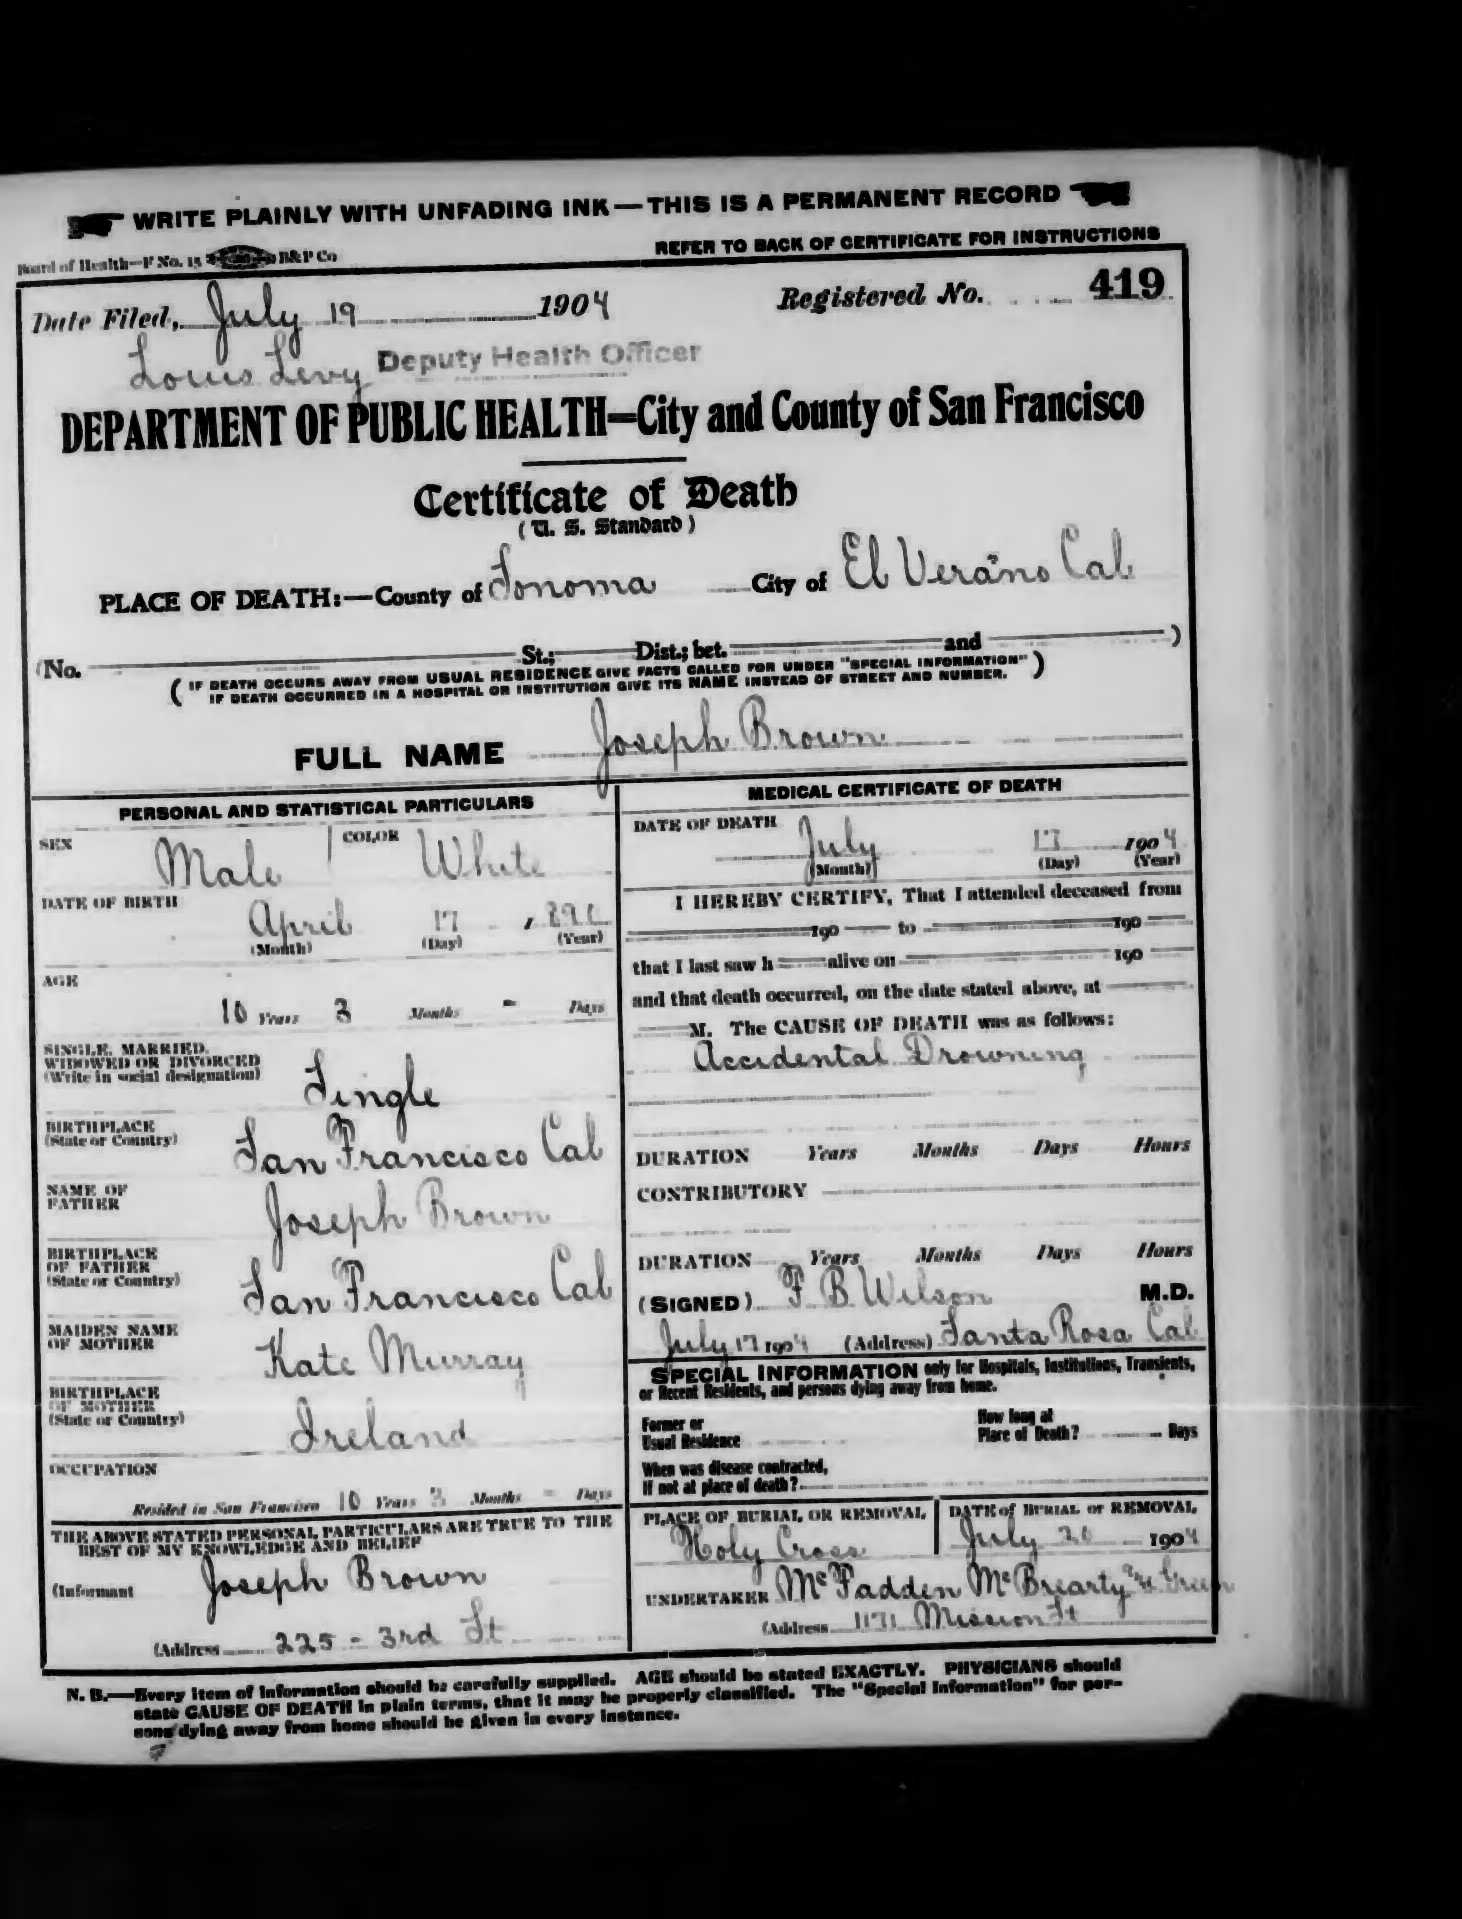 WRITE PLAINLY WITH UNFADING INK — THIS IS A PERMANENT RECORD
Board of Health—F No. 15 B&P Co
REFER TO BACK OF CERTIFICATE FOR INSTRUCTIONS
Date Filed, July 19 1904 Registered No. 419
Louis Levy Deputy Health Officer
DEPARTMENT OF PUBLIC HEALTH—City and County of San Francisco
Certificate of Death
(U. S. Standard)
PLACE OF DEATH:—County of Sonoma City of El Verano Cal
(No. St.; Dist.; bet. and )
( IF DEATH OCCURS AWAY FROM USUAL RESIDENCE GIVE FACTS CALLED FOR UNDER "SPECIAL INFORMATION" )
IF DEATH OCCURRED IN A HOSPITAL OR INSTITUTION GIVE ITS NAME INSTEAD OF STREET AND NUMBER.
FULL NAME Joseph Brown
PERSONAL AND STATISTICAL PARTICULARS
SEX Male COLOR White
DATE OF BIRTH
April 17
(Month) (Day) (Year)
AGE
10 Years 3 Months - Days
SINGLE, MARRIED,
WIDOWED OR DIVORCED
(Write in social designation) Single
BIRTHPLACE
(State or Country) San Francisco Cal
NAME OF
FATHER Joseph Brown
BIRTHPLACE
OF FATHER
(State or Country) San Francisco Cal
MAIDEN NAME
OF MOTHER Kate Murray
BIRTHPLACE
OF MOTHER
(State or Country) Ireland
OCCUPATION
Resided in San Francisco 10 Years 3 Months - Days
THE ABOVE STATED PERSONAL PARTICULARS ARE TRUE TO THE
BEST OF MY KNOWLEDGE AND BELIEF
(Informant Joseph Brown
(Address 225 - 3rd St
MEDICAL CERTIFICATE OF DEATH
DATE OF DEATH
July 17 1904
(Month) (Day) (Year)
I HEREBY CERTIFY, That I attended deceased from
190 to 190
that I last saw h alive on 190
and that death occurred, on the date stated above, at
M. The CAUSE OF DEATH was as follows:
Accidental Drowning
DURATION Years Months Days Hours
CONTRIBUTORY
DURATION Years Months Days Hours
(SIGNED) F B Wilson M.D.
July 17 1904 (Address) Santa Rosa Cal
SPECIAL INFORMATION only for Hospitals, Institutions, Transients,
or Recent Residents, and persons dying away from home.
Former or
Usual Residence
How long at
Place of Death? Days
When was disease contracted,
If not at place of death?
PLACE OF BURIAL OR REMOVAL
Holy Cross
DATE of BURIAL or REMOVAL
July 20 1904
UNDERTAKER McFadden McBrearty and Green
(Address 1171 Mission St
N. B.—Every item of information should be carefully supplied. AGE should be stated EXACTLY. PHYSICIANS should
state CAUSE OF DEATH in plain terms, that it may be properly classified. The "Special Information" for per-
sons dying away from home should be given in every instance.